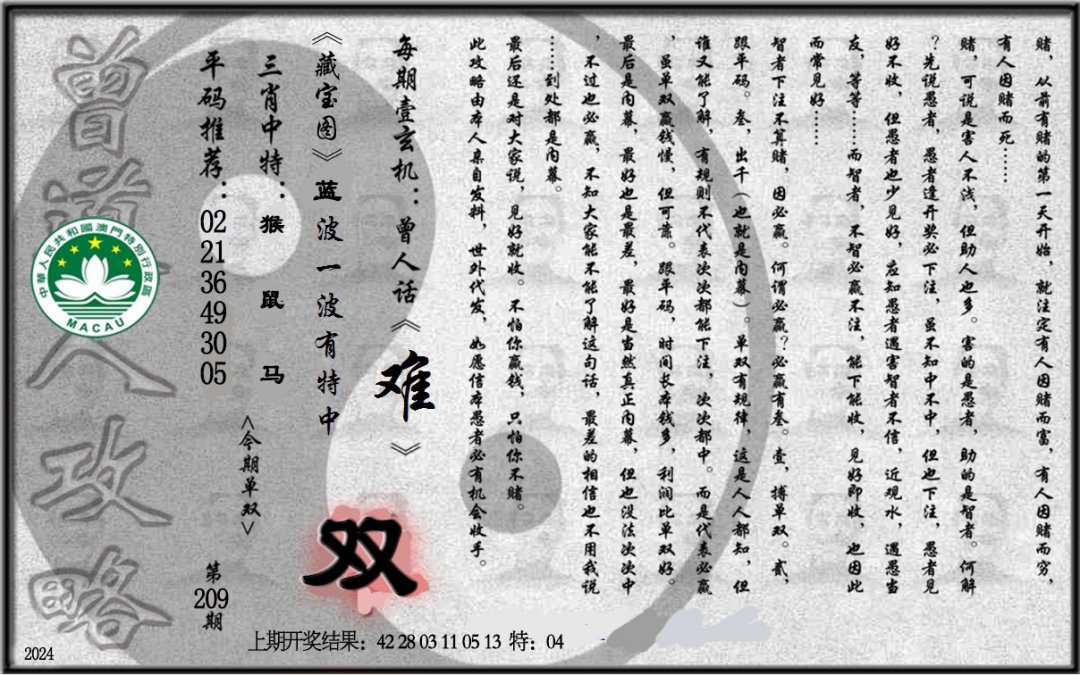 赌，从前有赌的第一天开始，就注定有人因赌而富，有人因赌而穷，
有人因赌而死……
赌，可说是害人不浅，但助人也多。害的是愚者，助的是智者。何解
？先说愚者，愚者逢开奖必下注，虽不知中不中，但也下注，愚者见
好不收，但愚者也少见好，应知愚者遇害智者不信，近观水，遇愚当
友，等等……而智者，不智必赢不注，能下能收，见好即收，也因此
而常见好……
智者下注不算赌，因必赢。何谓必赢？必赢有叁。壹，搏单双。贰，
跟平码。叁，出千（也就是内幕）。单双有规律，这是人人都知，但
谁又能了解，有规则不代表次次都能下注，次次都中。而是代表必赢
，虽单双赢钱慢，但可靠。跟平码，时间长本钱多，利润比单双好。
最后是内幕，最好也是最差，最好是当然真正内幕，但也没法次次中
，不过也必赢，不知大家能不能了解这句话，最差的相信也不用我说
……到处都是内幕。
最后还是对大家说，见好就收。不怕你赢钱，只怕你不赌。
此攻略由本人亲自发料，世外代发，如愿信本愚者必有机会收手。
每期壹玄机：曾人话《难》
《藏宝图》蓝波一波有特中
双
三肖中特：猴 鼠 马
<今期单双>
平码推荐：02 21 36 49 30 05
第209期
曾道人攻略
中華人民共和國澳門特別行政區
MACAU
上期开奖结果：42 28 03 11 05 13 特：04
2024